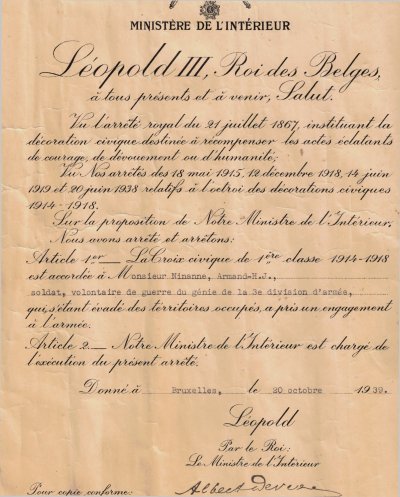 MINISTÈRE DE L'INTÉRIEUR
Léopold III, Roi des Belges,
à tous présents et à venir, Salut.
Vu l'arrêté royal du 21 juillet 1867, instituant la
décoration civique destinée à récompenser les actes éclatants
de courage, de dévouement ou d'humanité;
Vu Nos arrêtés des 18 mai 1915, 12 décembre 1918, 14 juin
1919 et 20 juin 1938 relatifs à l'octroi des décorations civiques
1914-1918.
Sur la proposition de Notre Ministre de l'Intérieur,
Nous avons arrêté et arrêtons:
Article 1er — La Croix civique de 1ère classe 1914-1918
est accordée à Monsieur Ninanne, Armand-H.J.,
soldat, volontaire de guerre du génie de la 3e division d'armée,
qui, s'étant évadé des territoires occupés, a pris un engagement
à l'armée.
Article 2 — Notre Ministre de l'Intérieur est chargé de
l'exécution du présent arrêté.
Donné à Bruxelles, le 20 octobre 1939.
Léopold
Par le Roi:
Le Ministre de l'Intérieur
Pour copie conforme: